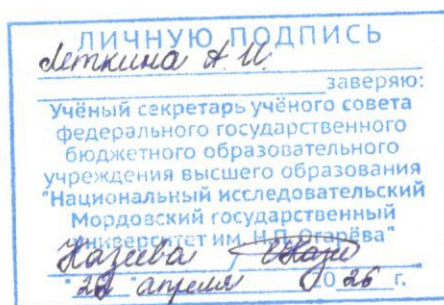 ЛИЧНУЮ ПОДПИСЬ
Леткина А.И.
заверяю:
Учёный секретарь учёного совета
федерального государственного
бюджетного образовательного
учреждения высшего образования
"Национальный исследовательский
Мордовский государственный
университет им. Н.П. Огарёва"
Назеева
апреля 2026 г.